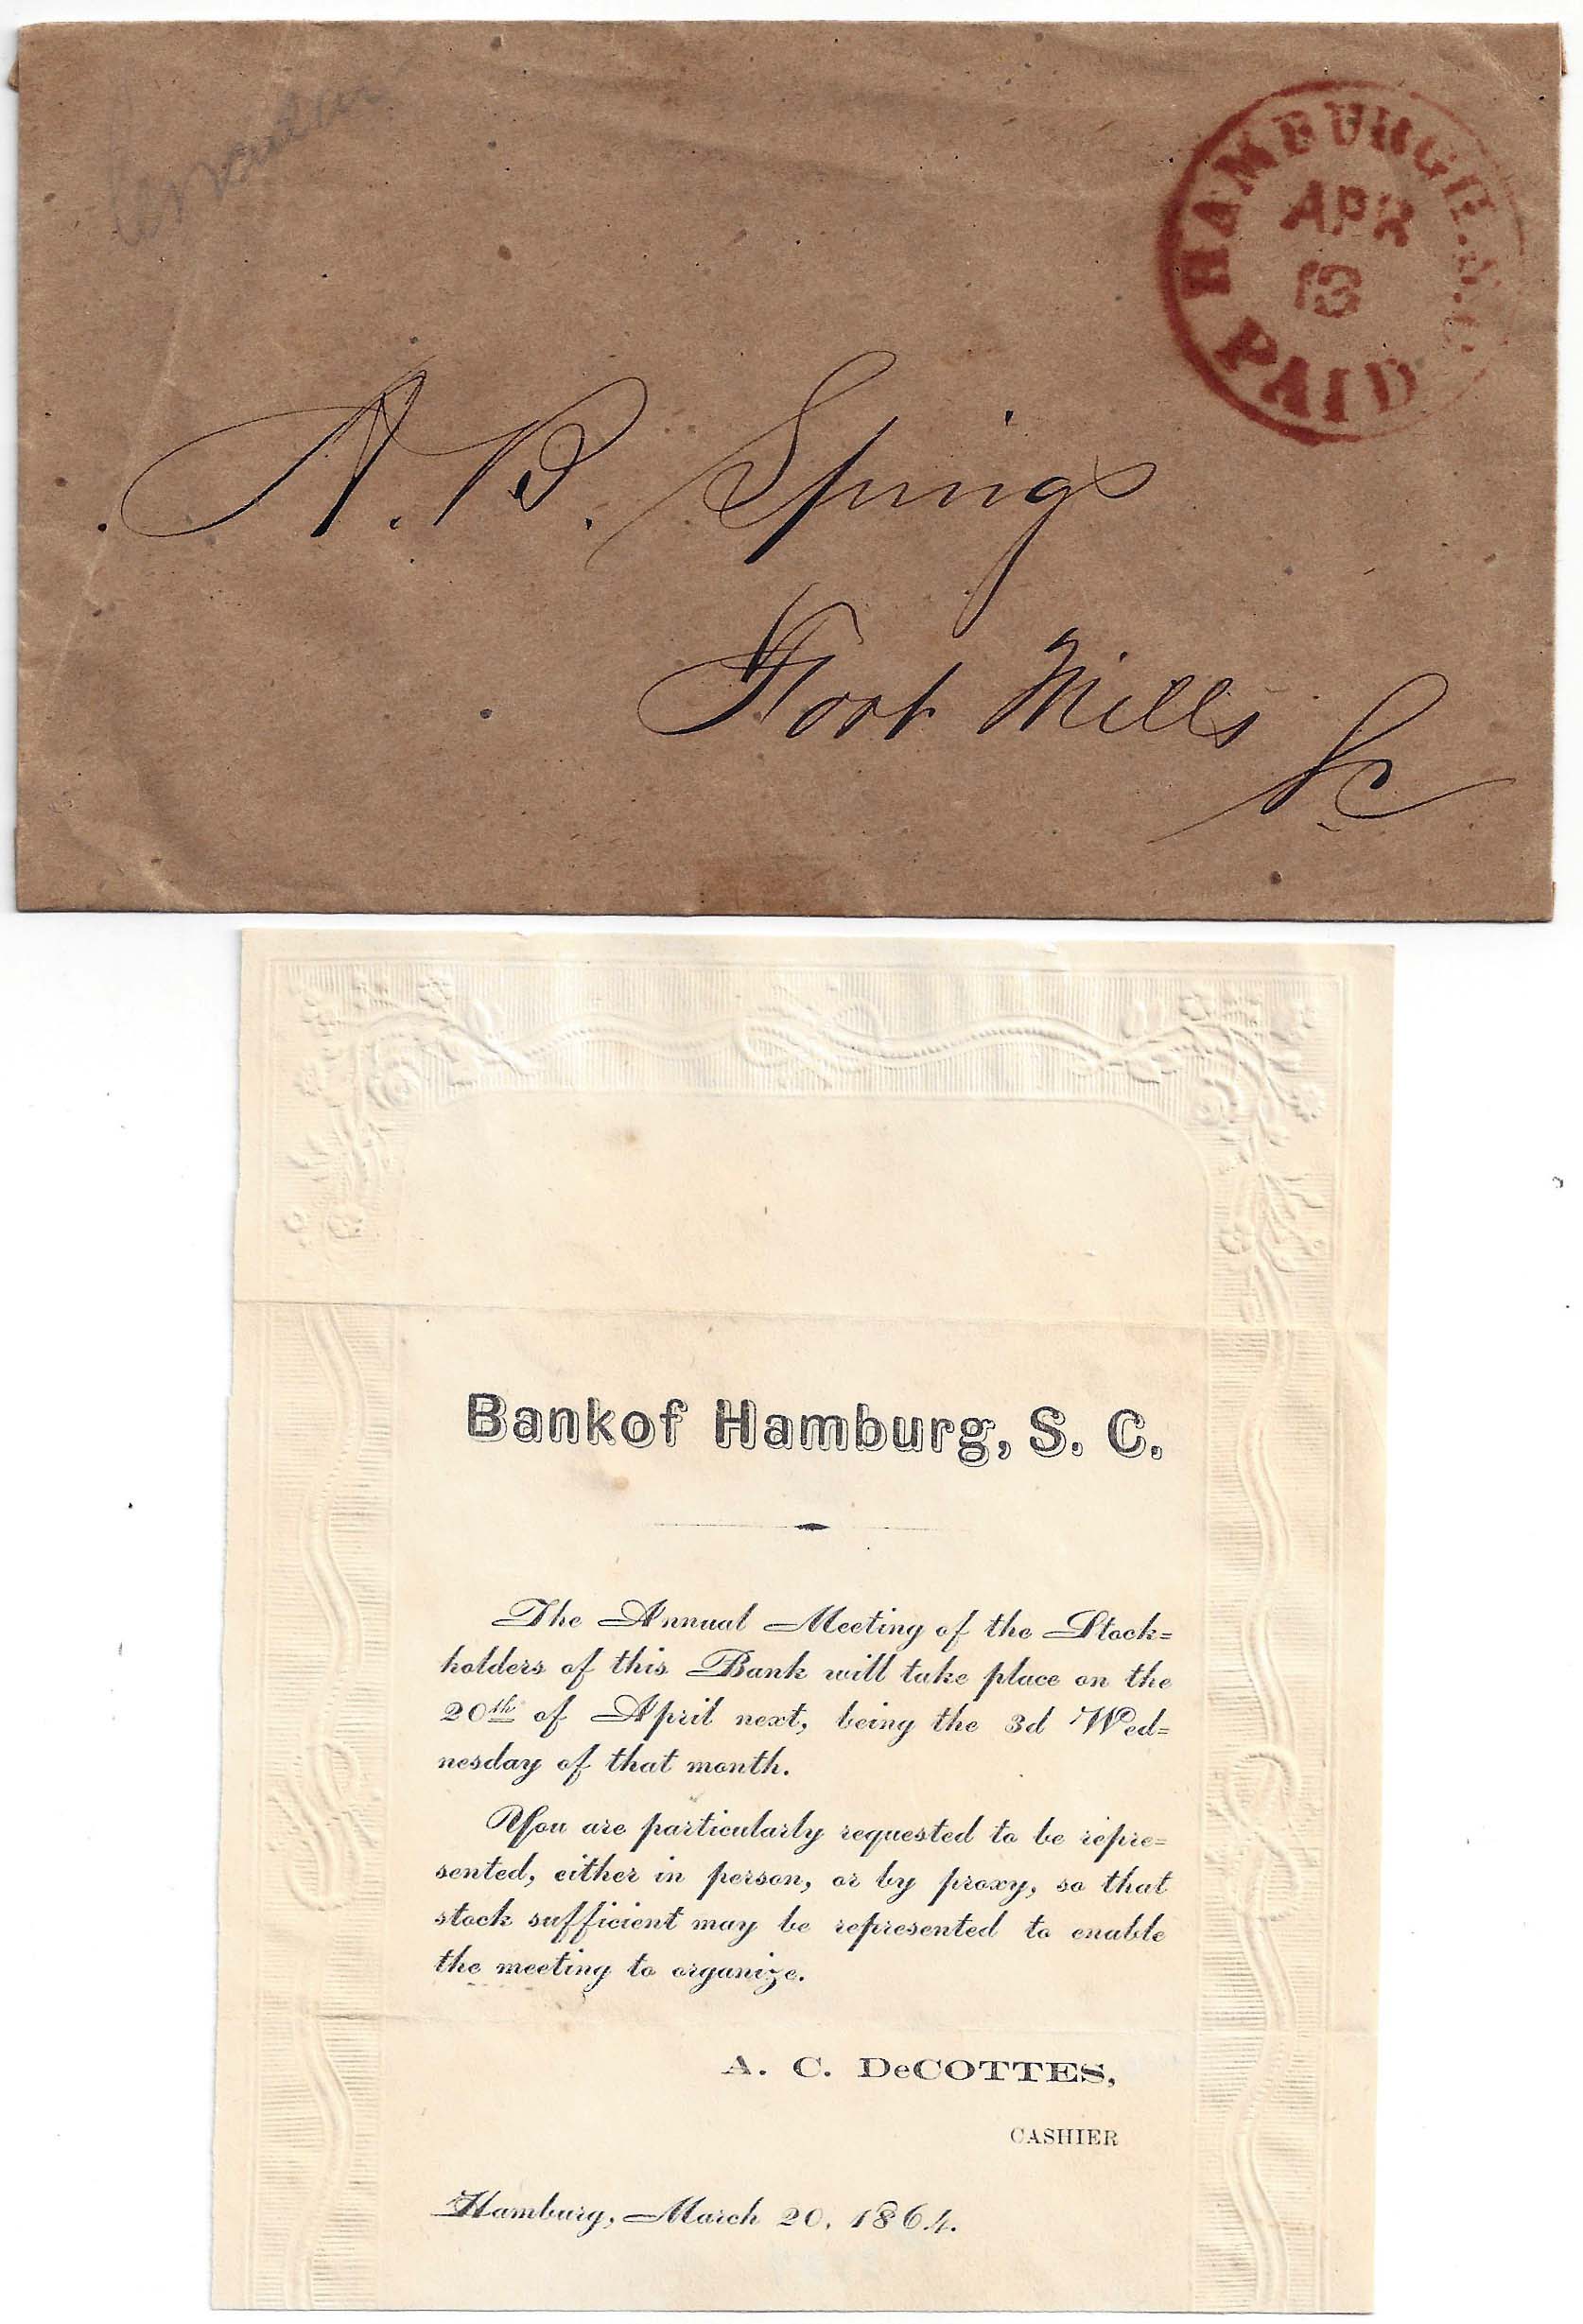 HAMBURGH. S.C.
APR
13
PAID
A. B. Springs
Fort Mills
SC
Bank of Hamburg, S. C.
The Annual Meeting of the Stock=
holders of this Bank will take place on the
20th of April next, being the 3d Wed=
nesday of that month.
You are particularly requested to be repre=
sented, either in person, or by proxy, so that
stock sufficient may be represented to enable
the meeting to organize.
A. C. DeCOTTES,
CASHIER
Hamburg, March 20, 1864.